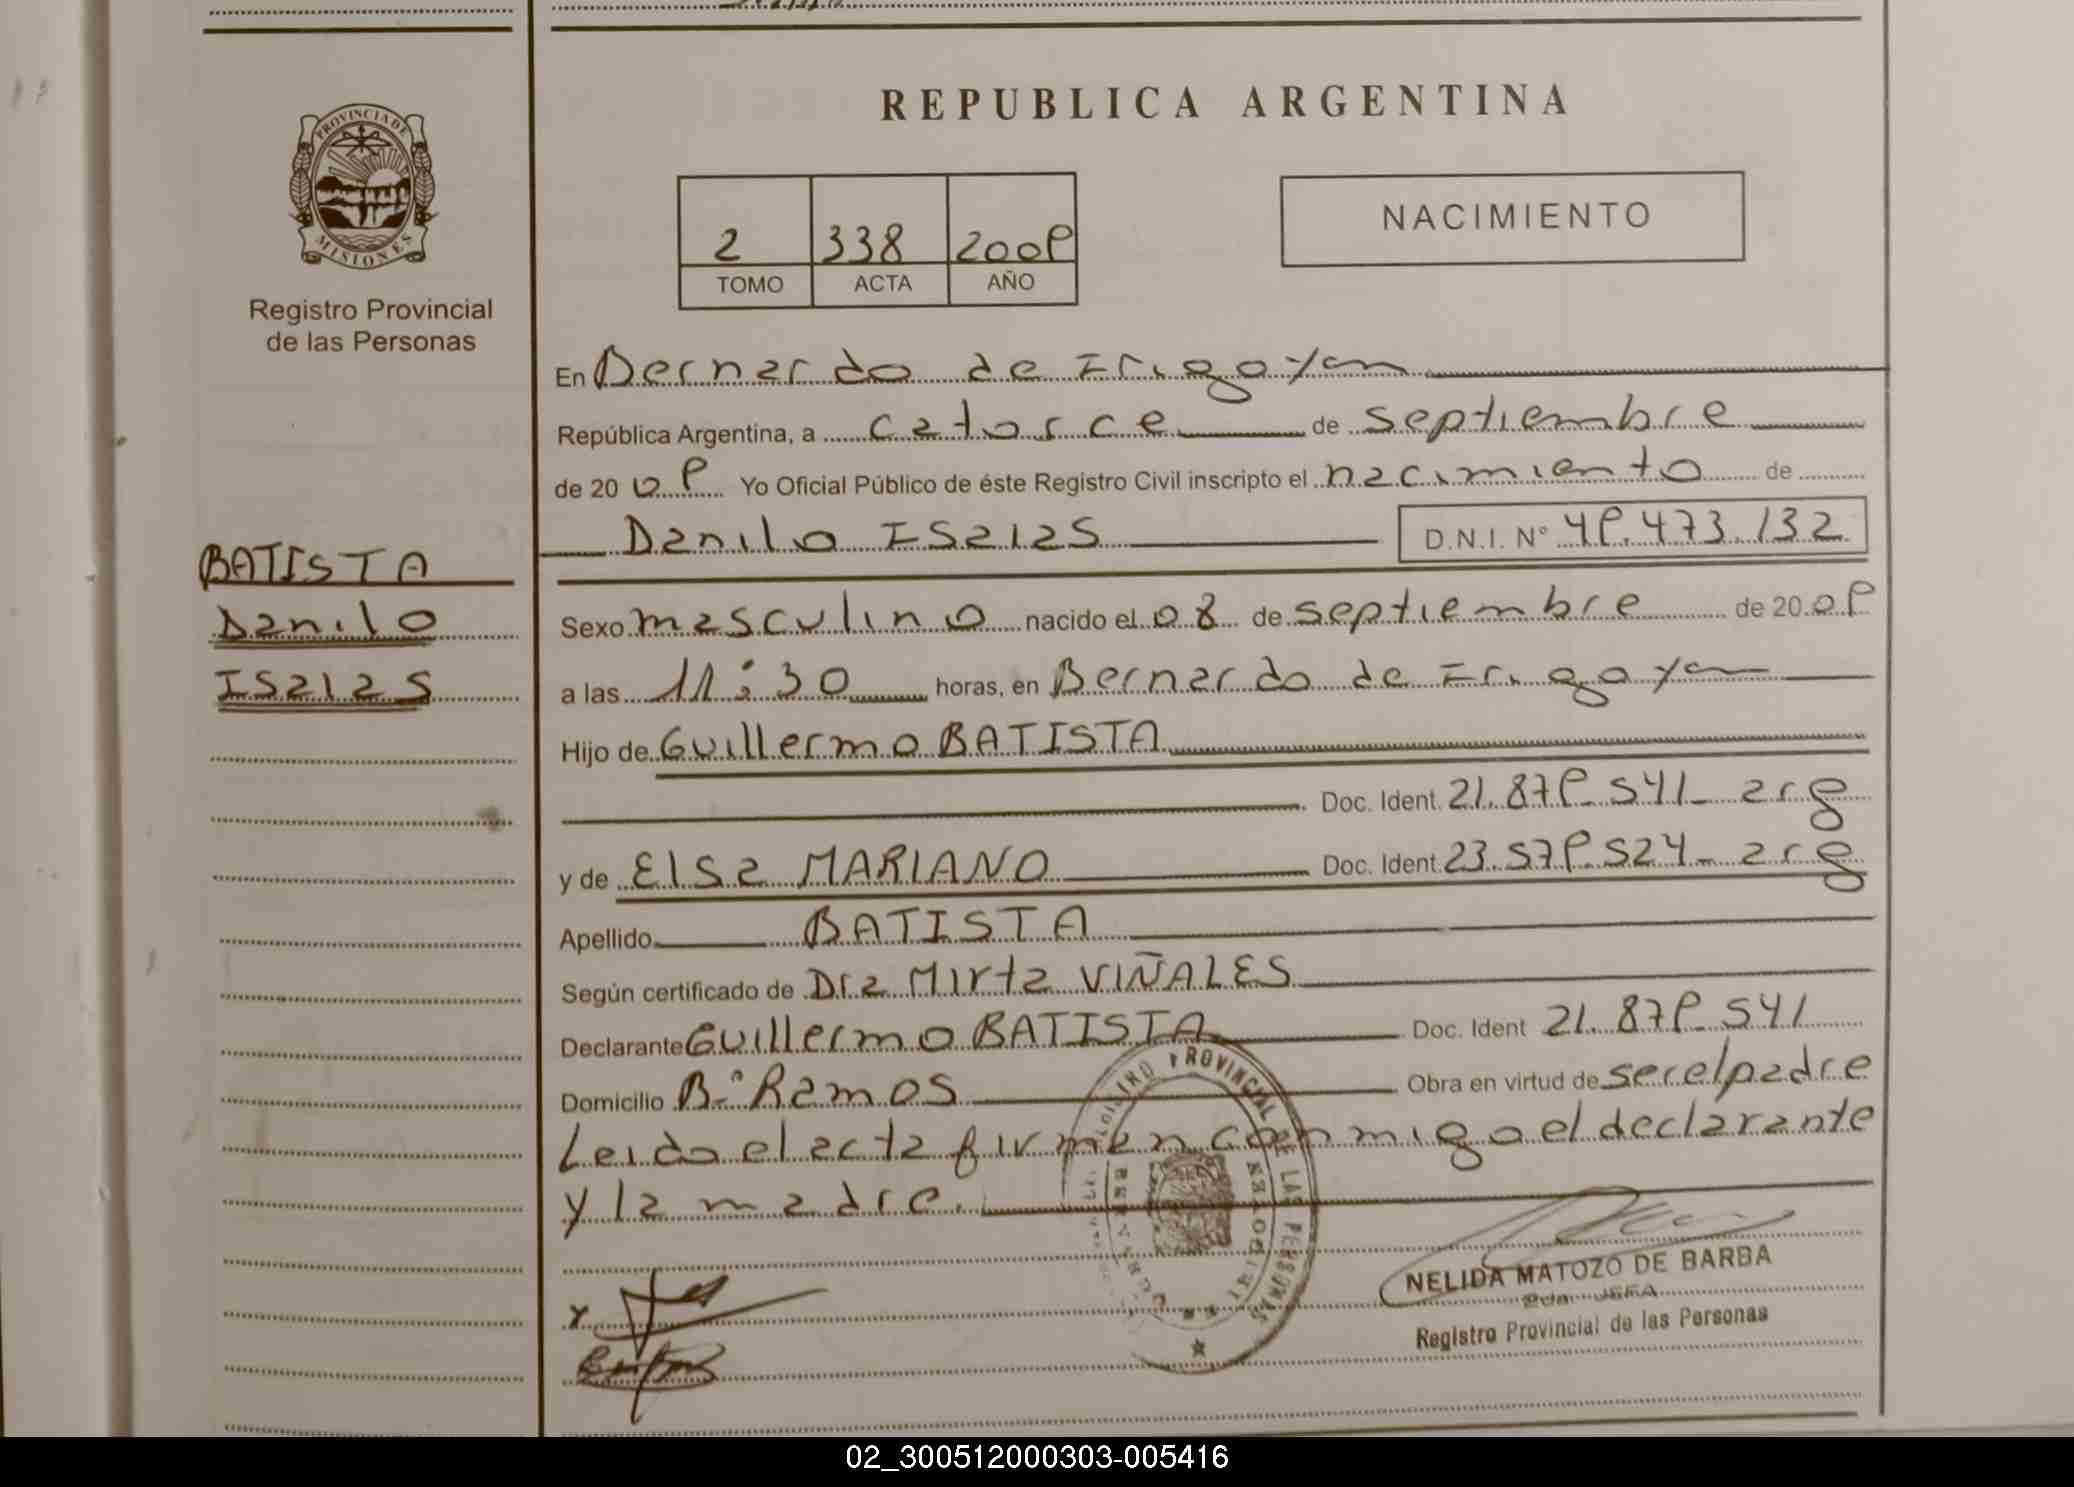 REPUBLICA ARGENTINA
PROVINCIA DE
MISIONES
Registro Provincial
de las Personas
2 338 2009
TOMO ACTA AÑO
NACIMIENTO
En Bernardo de Irigoyen
República Argentina, a catorce de septiembre
de 20 09 Yo Oficial Público de éste Registro Civil inscripto el nacimiento de
Danilo Isaias D.N.I. Nº 49.473.132
BATISTA
Danilo
Isaias
Sexo masculino nacido el 08 de septiembre de 20 09
a las 11:30 horas, en Bernardo de Irigoyen
Hijo de Guillermo BATISTA
Doc. Ident. 21.879.541_ arg
y de Elsa MARIANO Doc. Ident. 23.579.524_ arg
Apellido BATISTA
Según certificado de Dra Mirta VIÑALES
Declarante Guillermo BATISTA Doc. Ident 21.879.541
Domicilio Bº Ramos Obra en virtud de ser el padre
Leido el acta firman conmigo el declarante
y la madre.
PROVINCIAL DE LAS PERSONAS
NELIDA MATOZO DE BARBA
2da. JEFA
Registro Provincial de las Personas
02_300512000303-005416